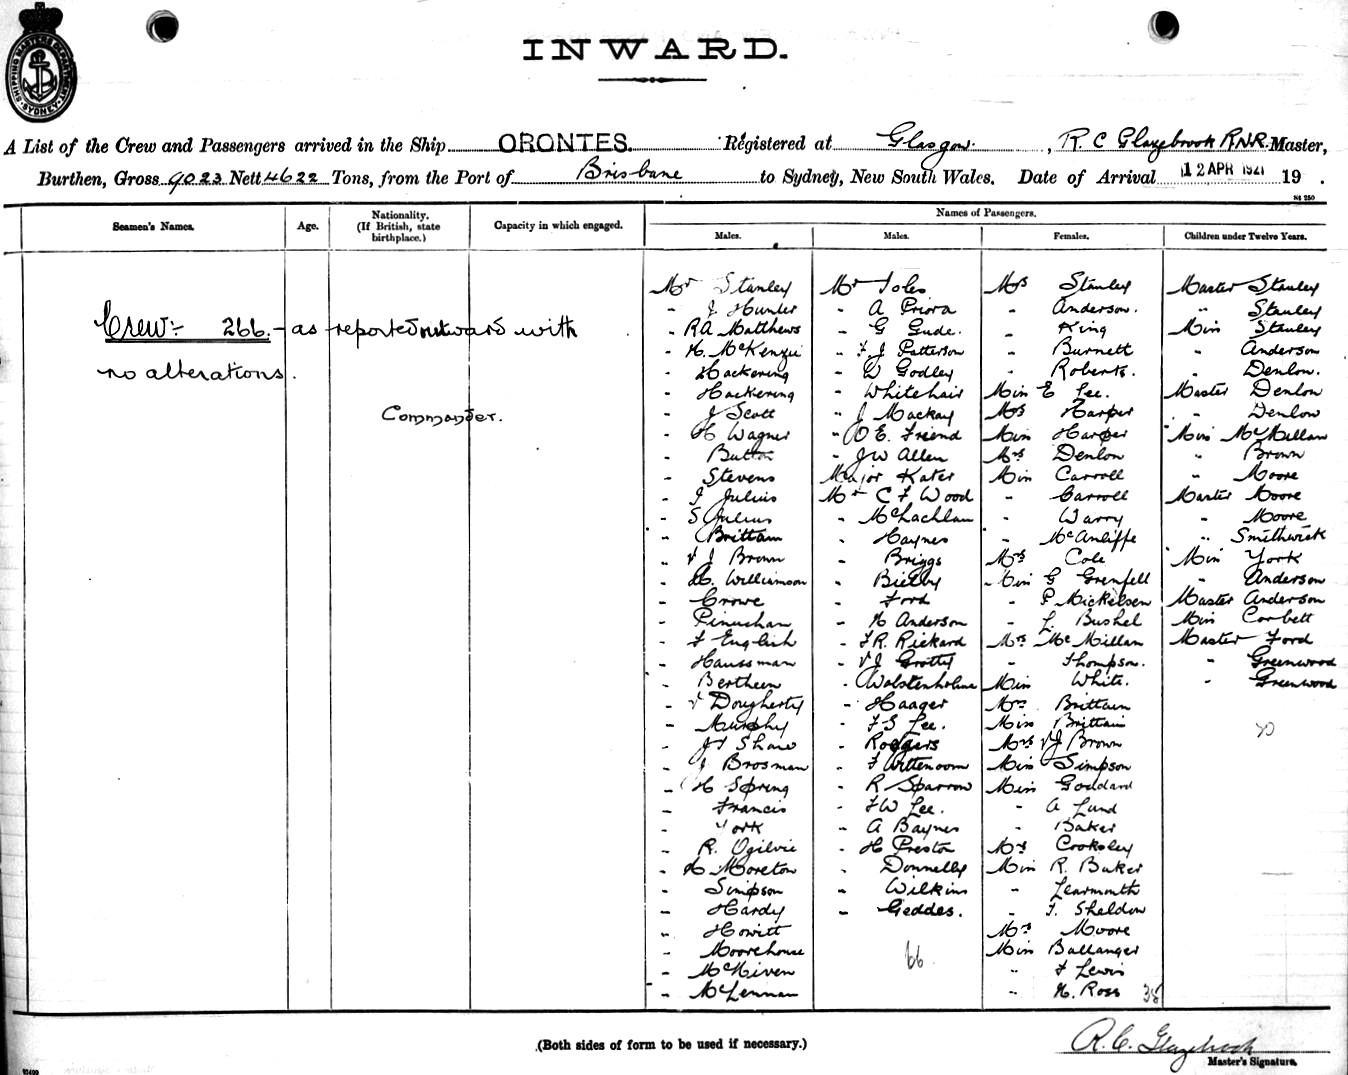 SHIPPING MASTER'S DEPARTMENT SYDNEY
INWARD.
A List of the Crew and Passengers arrived in the Ship ORONTES. Registered at Glasgow. , R. C Glazebrook RNR. Master,
Burthen, Gross 9023 Nett 4622 Tons, from the Port of Brisbane to Sydney, New South Wales. Date of Arrival 12 APR 1921 19 .
Seamen's Names.
Age.
Nationality.
(If British, state
birthplace.)
Capacity in which engaged.
Names of Passengers.
Males.
Males.
Females.
Children under Twelve Years.
Crew:- 266. - as reported outward with
no alterations.
Commander.
Mr Stanley
" J Hunter
" R A Matthews
" H. McKenzie
" Hackering
" Hackering
" J Scott
" H Wagner
" Button
" Stevens
" J Julius
" S Julius
" Brittain
" V J Brown
" H. Williamson
" Crowe
" Pinuchan
" F English
" Haussman
" Bertheen
" V Dougherty
" Murphy
" J F Shaw
" J Brosman
" H Spring
" Francis
" York
" R. Ogilvie
" H Moreton
" Simpson
" Hardy
" Howitt
" Moorehouse
" McNiven
" McLennan
Mr Toles
" A Priora
" G Gude.
" F. J Patterson
" W Godley
" Whitehair
" J Mackay
" O E. Friend
" J W Allen
Major Kater
Mr C F Wood
" McLachlan
" Haynes
" Briggs
" Bielby
" Ford
" H Anderson
" F. R. Rickard
" V J Grotty
" Wolstenholme
" Haager
" F S Lee.
" Rodgers
" F Wittenoom
" R Sparrow
" F W Lee.
" A Baynes
" H Preston
" Donnelly
" Wilkins
" Geddes.
66
Mrs Stanley
" Anderson.
" King
" Burnett
" Roberts.
Miss E Lee.
Mrs Harper
Miss Harper
Mrs Denlon
Miss Carroll
" Carroll
" Warry
" McAuliffe
Mrs Cole
Miss G Grenfell
" P Mickelsen
" L. Bushel
Mrs McMillan
" Thompson.
Miss White.
Mrs Brittain
Miss Brittain
Mrs V J Brown
Miss Simpson
Miss Goddard
" A Lund
" Baker
Mrs Cooksley
Miss R. Baker
" Learmonth
" F. Sheldon
Mrs Moore
Miss Ballanger
" F Lewis
" H. Ross 35
Master Stanley
" Stanley
Miss Stanley
" Anderson
" Denlon.
Master Denlon
" Denlow
Miss McMillan
" Brown
" Moore
Master Moore
" Moore
" Smithwick
Miss York
" Anderson
Master Anderson
Miss Corbett
Master Ford
" Greenwood
" Greenwood
20
(Both sides of form to be used if necessary.)
R. C. Glazebrook
Master's Signature.